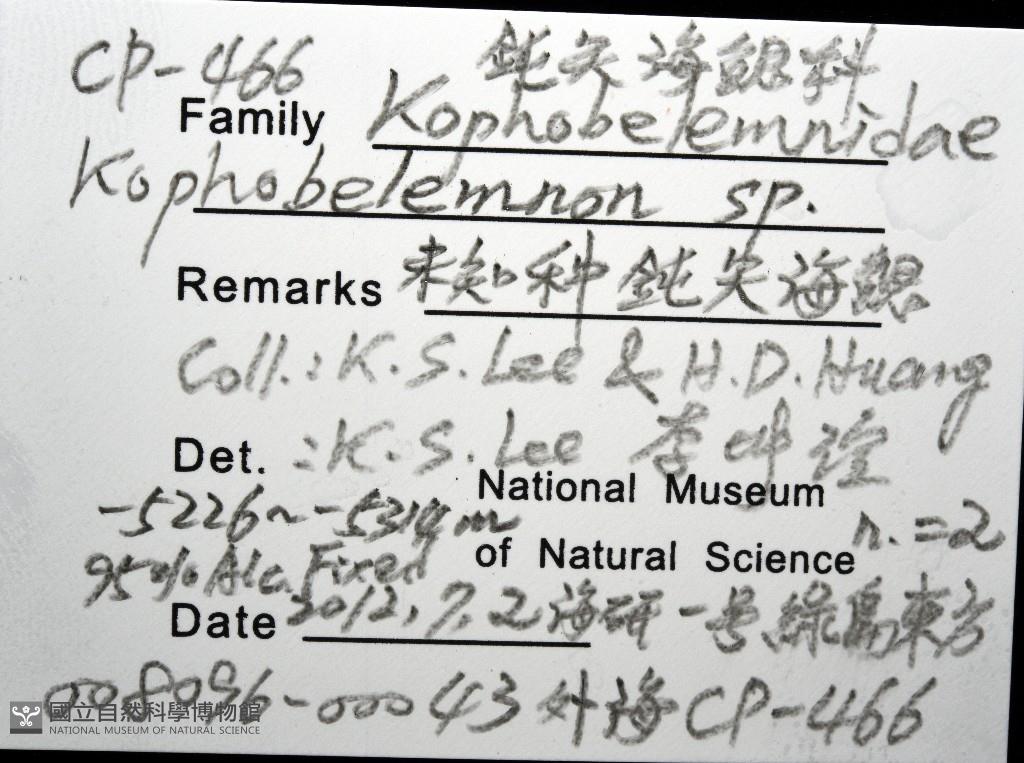 CP-466 鈍矢海鰓科
Family Kophobelemnidae
Kophobelemnon sp.
Remarks 未知种鈍矢海鰓
Coll.: K.S. Lee & H.D. Huang
Det. : K.S. Lee 李坤瑄
National Museum
-5226~-5314m
of Natural Science n.=2
95% Alc. Fixed
Date 2012,7,2 海研一号綠島東方
008096-00043 外海 CP-466
國立自然科學博物館
NATIONAL MUSEUM OF NATURAL SCIENCE